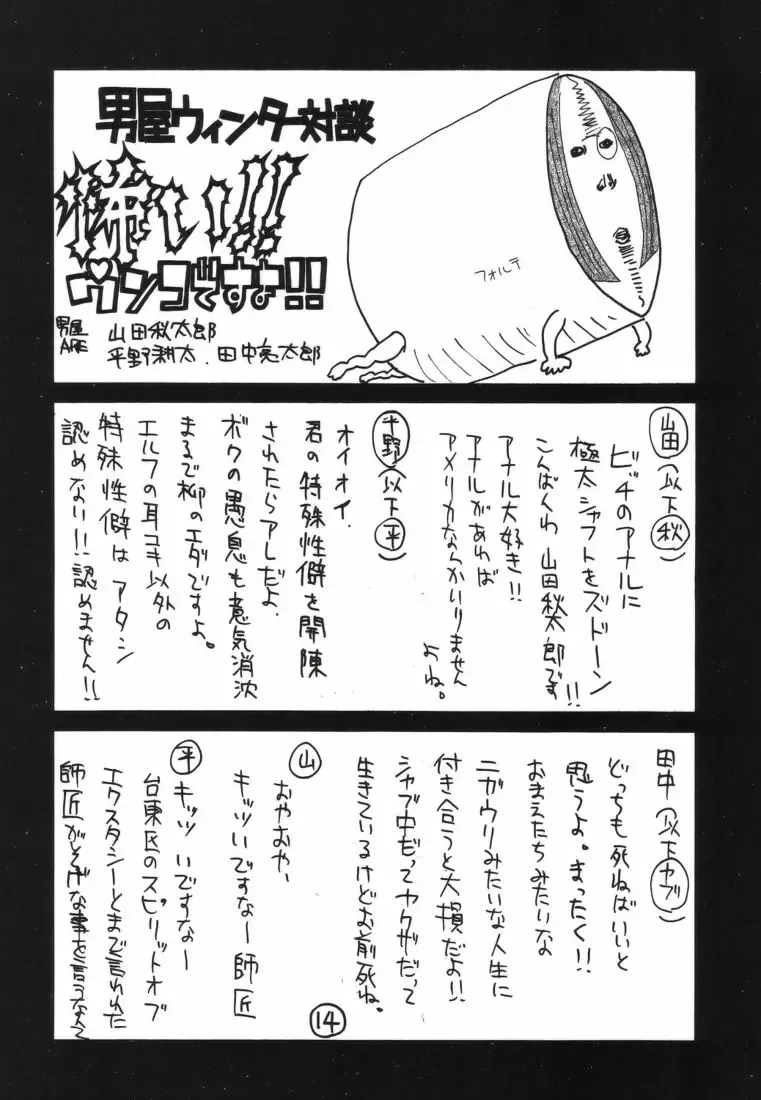 男屋ウィンター対談
怖い!!
ウンコですよ!!
男屋
ARE
山田秋太郎
平野耕太、田中亮太郎
フォルテ
山田(以下秋)
ビッチのアナルに
極太シャフトをズドーン!!
こんばんわ山田秋太郎です
アナル大好き!!
アナルがあれば
アメリカなんかいりません
よね。
平野(以下平)
オイオイ、
君の特殊性癖を開陳
されたらアレだよ、
ボクの愚息も意気消沈
まるで柳のエダですよ。
エルフの耳コキ以外の
特殊性癖はアタシ
認めない!!認めません!!
田中(以下ヤブ)
どっちも死ねばいいと
思うよ。まったく!!
おまえたちみたいな
ニガウリみたいな人生に
付き合うと大損だよ!!
シャブ中だってヤクザだって
生きているけどお前死ね。
山
おやおや、
キッツいですなー師匠
平
キッツいですなー
台東区のスピリットオブ
エクスタシーとまで言われた
師匠がそげな事を言うなんて
14